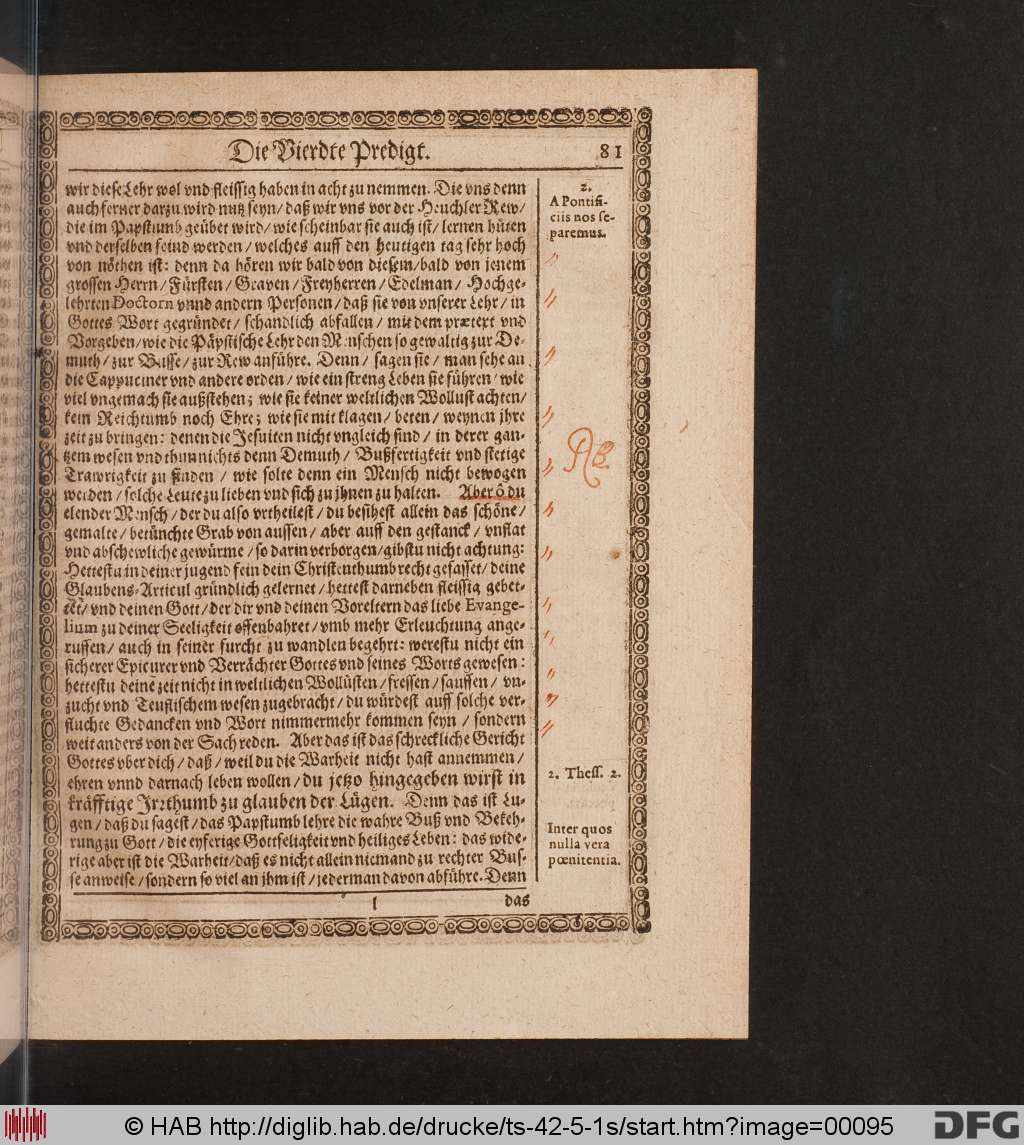 Die Vierdte Predigt. 81
wir diese Lehr wol vnd fleissig haben in acht zu nemmen. Die vns denn
auch ferner darzu wird nutz seyn / daß wir vns vor der Heuchler Rew /
die im Papstumb geübet wird / wie scheinbar sie auch ist / lernen hüten
vnd derselben feind werden / welches auff den heutigen tag sehr hoch
von nöthen ist: denn da hören wir bald von diesem / bald von jenem
grossen Herrn / Fürsten / Graven / Freyherren / Edelman / Hochge-
lehrten Doctorn vnnd andern Personen / daß sie von vnserer Lehr / in
Gottes Wort gegründet / schandlich abfallen / mit dem prætext vnd
Vorgeben / wie die Päpstische Lehr den Menschen so gewaltig zur De-
muth / zur Busse / zur Rew anführe. Denn / sagen sie / man sehe an
die Cappuciner vnd andere orden / wie ein streng Leben sie führen / wie
viel vngemach sie außstehen; wie sie keiner weltlichen Wollust achten /
kein Reichtumb noch Ehre; wie sie mit klagen / beten / weynen jhre
zeit zu bringen: denen die Jesuiten nicht vngleich sind / in derer gan-
tzem wesen vnd thun nichts denn Demuth / Bußfertigkeit vnd stetige
Trawrigkeit zu finden / wie solte denn ein Mensch nicht bewogen
werden / solche Leute zu lieben vnd sich zu jhnen zu halten. Aber ô du
elender Mensch / der du also vrtheilest / du besihest allein das schöne /
gemalte / betünchte Grab von aussen / aber auff den gestanck / vnflat
vnd abschewliche gewürme / so darin verborgen / gibstu nicht achtung:
Hettestu in deiner jugend fein dein Christenthumb recht gefasset / deine
Glaubens-Articul gründlich gelernet / hettest darneben fleissig gebet-
tet / vnd deinen Gott / der dir vnd deinen Voreltern das liebe Evange-
lium zu deiner Seeligkeit offenbahret / vmb mehr Erleuchtung ange-
ruffen / auch in seiner furcht zu wandlen begehrt: werestu nicht ein
sicherer Epicurer vnd Verrächter Gottes vnd seines Worts gewesen:
hettestu deine zeit nicht in weltlichen Wollüsten / fressen / sauffen / vn-
zucht vnd Teuflischem wesen zugebracht / du würdest auff solche ver-
fluchte Gedancken vnd Wort nimmermehr kommen seyn / sondern
weit anders von der Sach reden. Aber das ist das schreckliche Gericht
Gottes vber dich / daß / weil du die Warheit nicht hast annemmen /
ehren vnnd darnach leben wollen / du jetzo hingegeben wirst in
kräfftige Jrrthumb zu glauben der Lügen. Denn das ist Lu-
gen / daß du sagest / das Papstumb lehre die wahre Buß vnd Bekeh-
rung zu Gott / die eyferige Gottseligkeit vnd heiliges Leben: das wide-
rige aber ist die Warheit / daß es nicht allein niemand zu rechter Bus-
se anweise / sondern so viel an jhm ist / jederman davon abführe. Denn
l das
2.
A Pontifi-
ciis nos se-
paremus.
2. Thess. 2.
Inter quos
nulla vera
pœnitentia.
© HAB http://diglib.hab.de/drucke/ts-42-5-1s/start.htm?image=00095
DFG